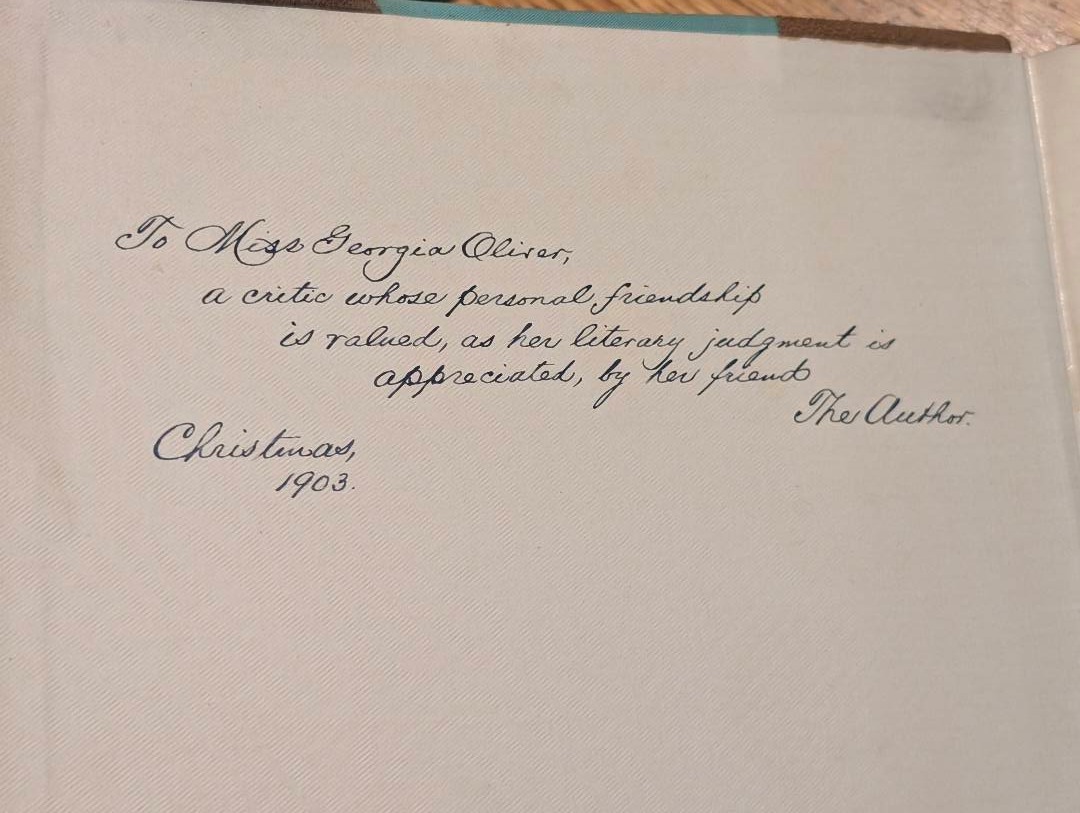 To Miss Georgia Oliver,
a critic whose personal friendship
is valued, as her literary judgment is
appreciated, by her friend
The Author.
Christmas,
1903.